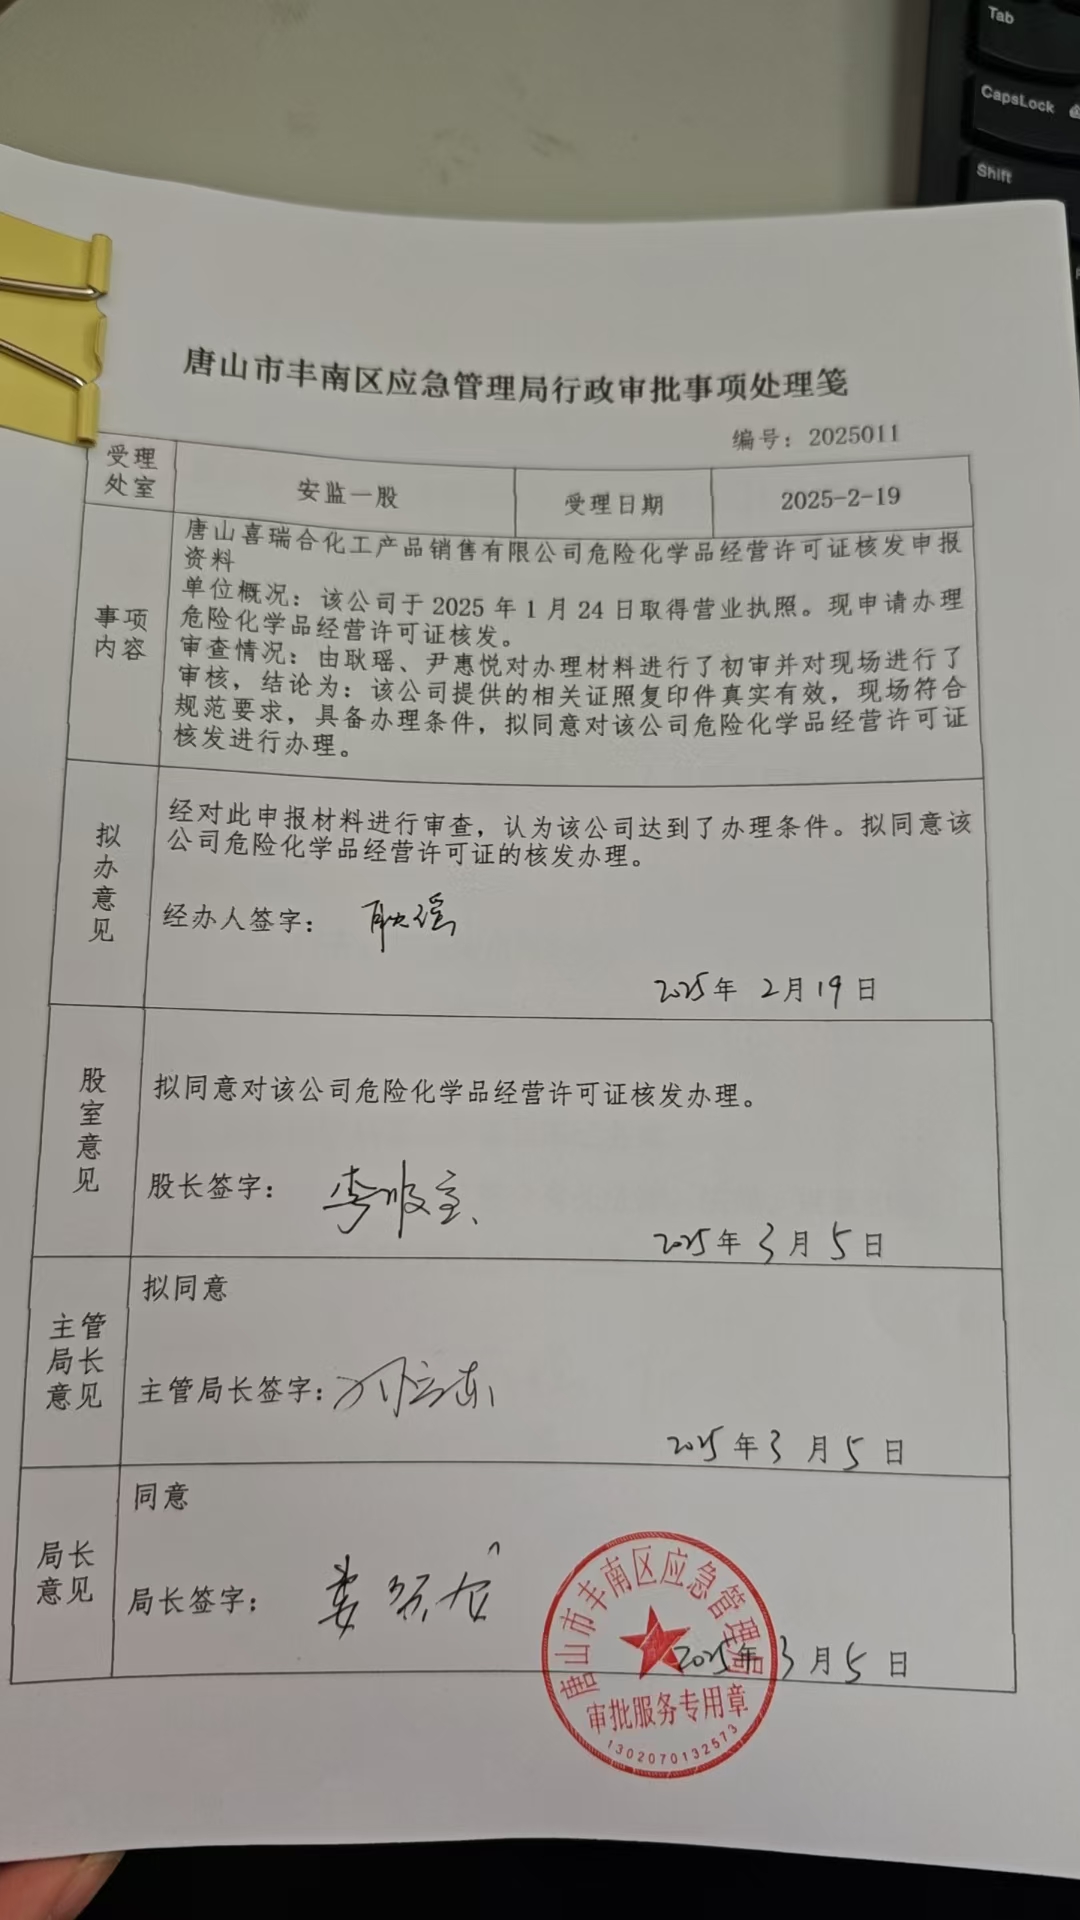 Tab
CapsLock
Shift
唐山市丰南区应急管理局行政审批事项处理笺
编号：2025011
受理处室
安监一股
受理日期
2025-2-19
事项内容
唐山喜瑞合化工产品销售有限公司危险化学品经营许可证核发申报
资料
单位概况：该公司于 2025 年 1 月 24 日取得营业执照。现申请办理
危险化学品经营许可证核发。
审查情况：由耿瑶、尹惠悦对办理材料进行了初审并对现场进行了
审核，结论为：该公司提供的相关证照复印件真实有效，现场符合
规范要求，具备办理条件，拟同意对该公司危险化学品经营许可证
核发进行办理。
拟办意见
经对此申报材料进行审查，认为该公司达到了办理条件。拟同意该
公司危险化学品经营许可证的核发办理。
经办人签字： 耿瑶
2025年 2月19日
股室意见
拟同意对该公司危险化学品经营许可证核发办理。
股长签字：
2025年3月5日
主管局长意见
拟同意
主管局长签字：
2025年3月5日
局长意见
同意
局长签字：
2025年3月5日
唐山市丰南区应急管理局
审批服务专用章
1302070132573